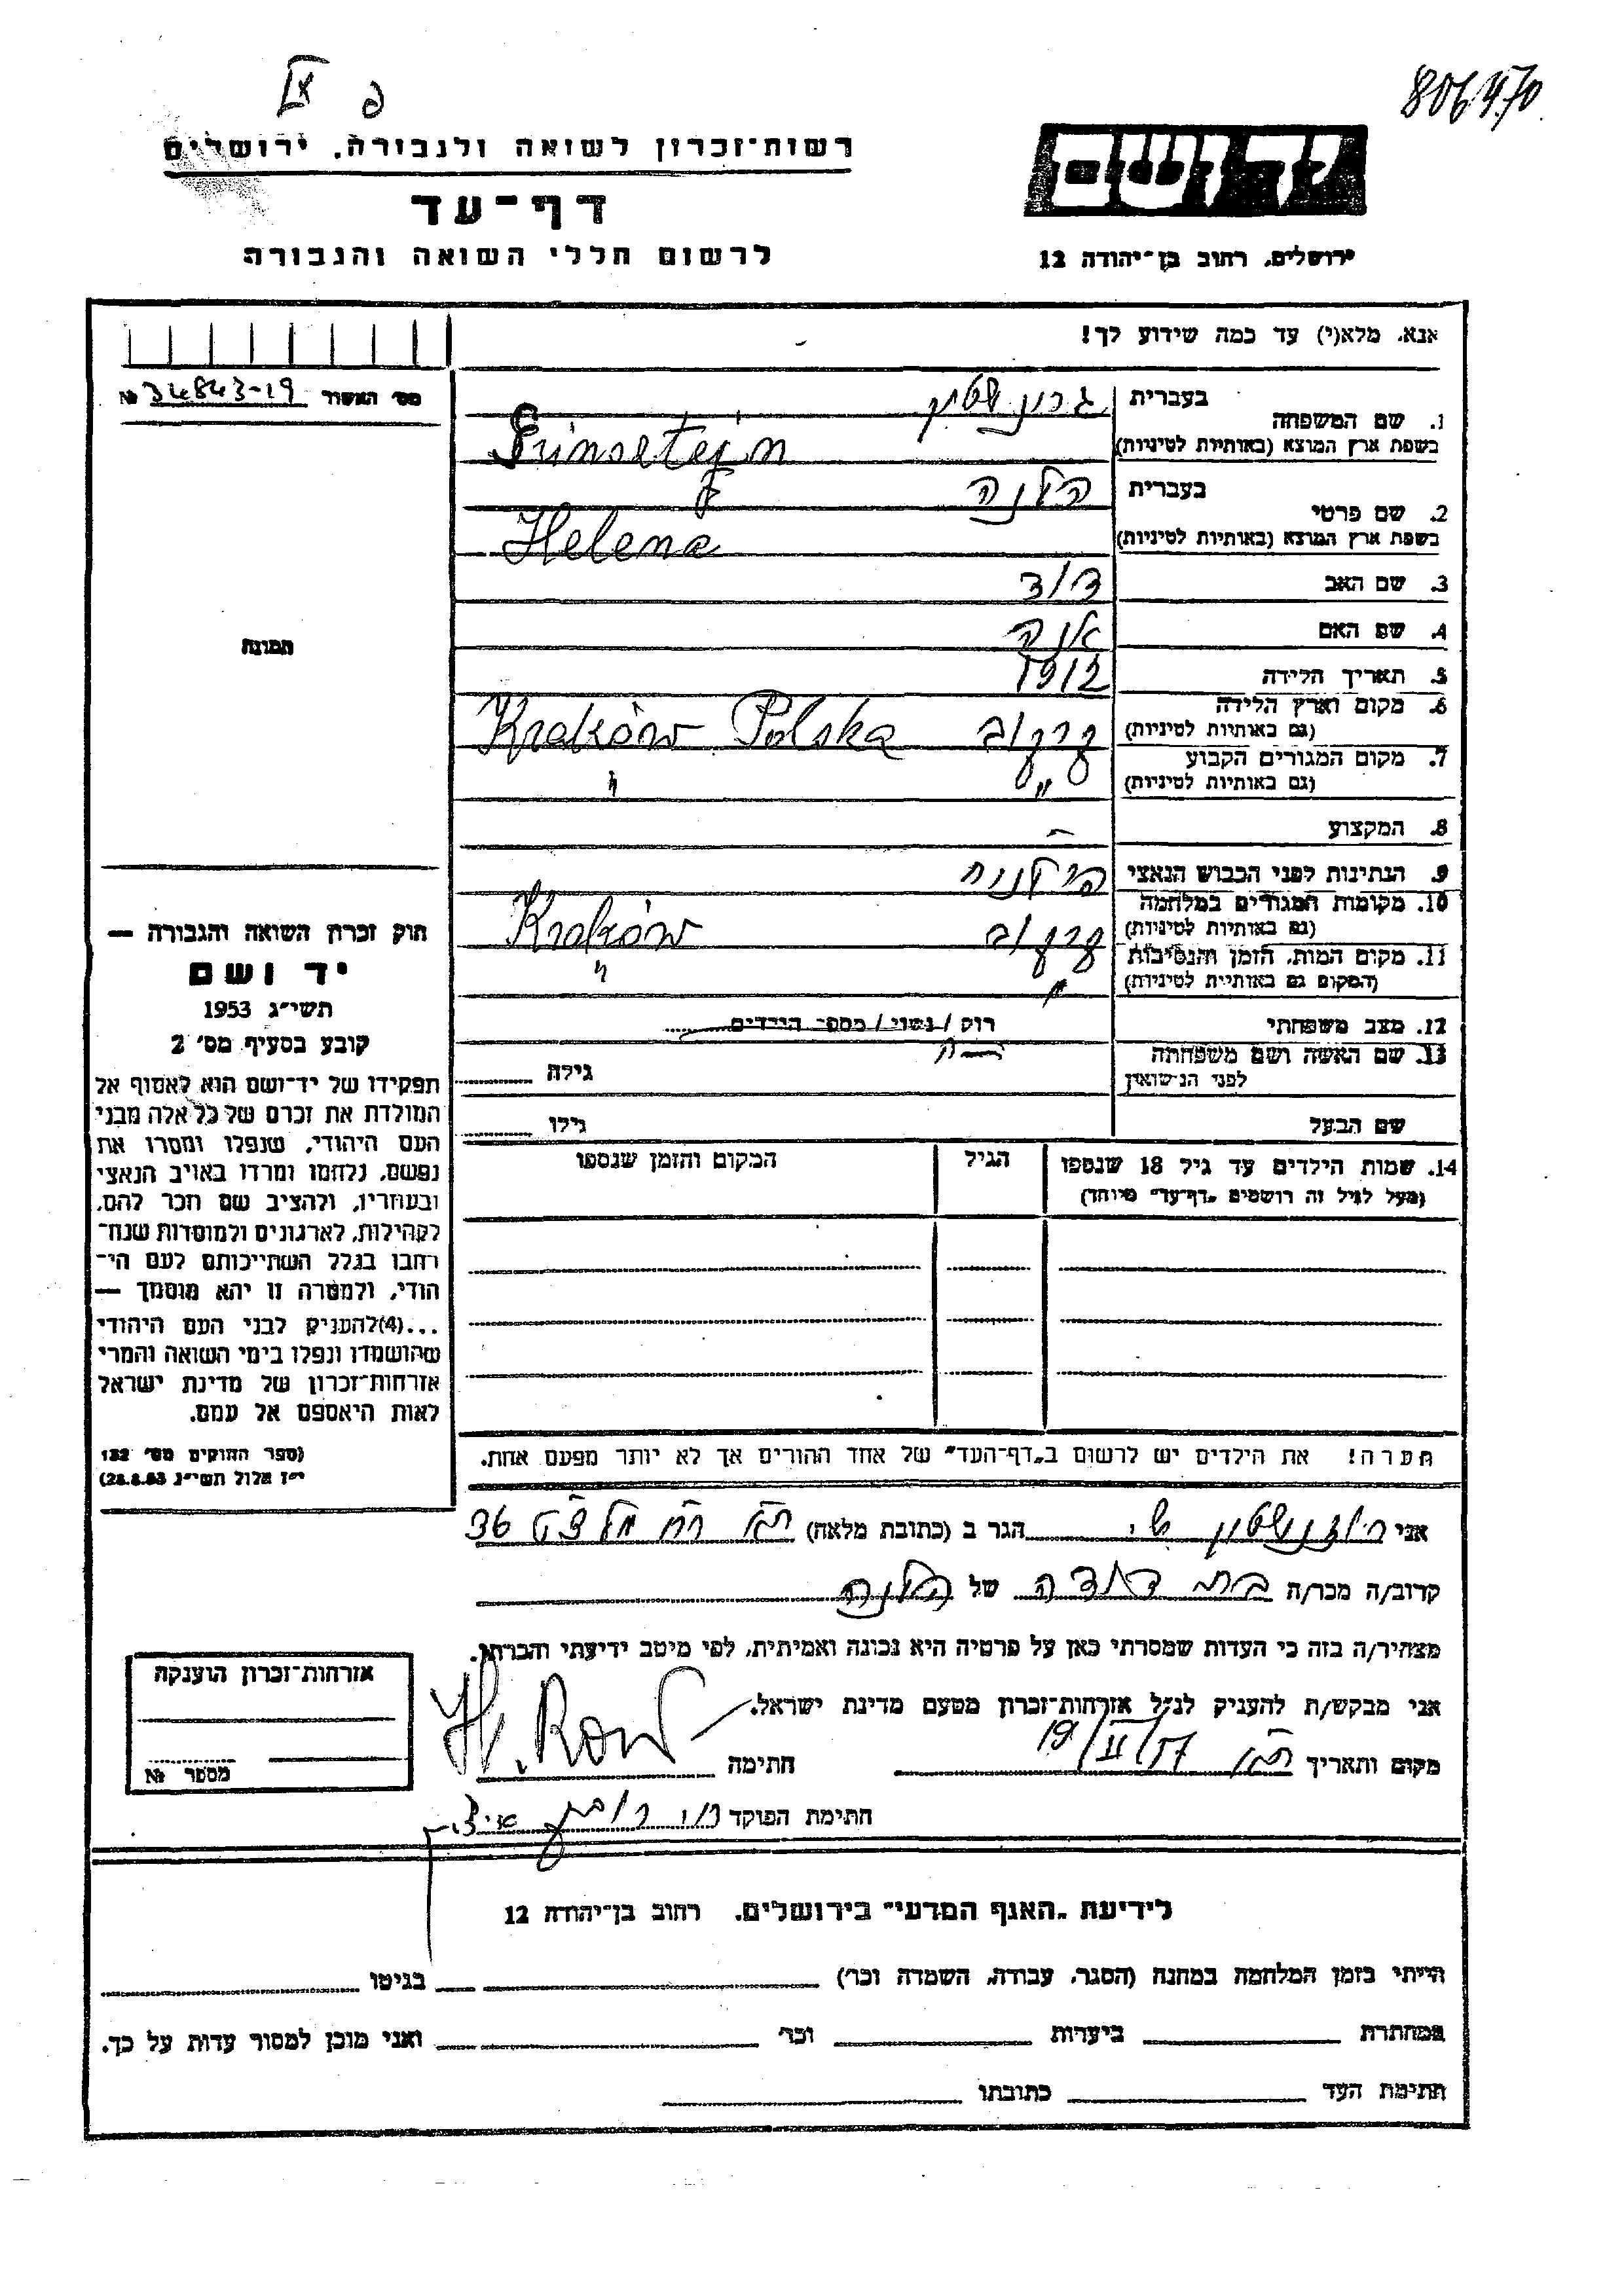 806470
פ
רשות־זכרון לשואה ולגבורה, ירושלים
יד ושם
דף־עד
לרשום חללי השואה והגבורה
ירושלים, רחוב בן־יהודה 12
אנא, מלא(י) עד כמה שידוע לך!
מס׳ האשור 34843-19 №
1. שם המשפחה
בעברית גרונשטיין
בשפת ארץ המוצא (באותיות לטיניות) Grinsztejn
2. שם פרטי
בעברית הלנה
בשפת ארץ המוצא (באותיות לטיניות) Helena
3. שם האב דוד
4. שם האם אנה
5. תאריך הלידה 1912
6. מקום וארץ הלידה (גם באותיות לטיניות) קרקוב Kraków Polska
7. מקום המגורים הקבוע (גם באותיות לטיניות) " "
8. המקצוע –
9. הנתינות לפני הכבוש הנאצי פולנית
10. מקומות המגורים במלחמה (גם באותיות לטיניות) קרקוב Kraków
11. מקום המות, הזמן והנסיבות (המקום גם באותיות לטיניות) " "
12. מצב משפחתי רוק/נשוי/מספר הילדים
13. שם האשה ושם משפחתה לפני הנישואין
גילה
שם הבעל
גילו
14. שמות הילדים עד גיל 18 שנספו
(מעל לגיל זה רושמים „דף־עד״ מיוחד)
הגיל
המקום והזמן שנספו
תמונה
חוק זכרון השואה והגבורה —
יד ושם
תשי״ג 1953
קובע בסעיף מס׳ 2
תפקידו של יד־ושם הוא לאסוף אל
המולדת את זכרם של כל אלה מבני
העם היהודי, שנפלו ומסרו את
נפשם, נלחמו ומרדו באויב הנאצי
ובעוזריו, ולהציב שם וזכר להם,
לקהילות, לארגונים ולמוסדות שנח־
רבו בגלל השתייכותם לעם הי־
הודי, ולמטרה זו יהא מוסמך —
...(4)להעניק לבני העם היהודי
שהושמדו ונפלו בימי השואה והמרי
אזרחות־זכרון של מדינת ישראל
לאות היאספם אל עמם.
(ספר החוקים מס׳ 132
י״ז אלול תשי״ג 28.8.53)
הערה! את הילדים יש לרשום ב„דף־העד״ של אחד ההורים אך לא יותר מפעם אחת.
אני הגר ב (כתובת מלאה) 36
קרוב/ה מכר/ה בת דודה של הלנה
מצהיר/ה בזה כי העדות שמסרתי כאן על פרטיה היא נכונה ואמיתית, לפי מיטב ידיעתי והכרתי.
אני מבקש/ת להעניק לנ״ל אזרחות־זכרון מטעם מדינת ישראל.
מקום ותאריך 19/II/57 חתימה
חתימת הפוקד
אזרחות־זכרון הוענקה
מספר №
לידיעת „האגף המדעי״ בירושלים, רחוב בן־יהודה 12
הייתי בזמן המלחמה במחנה (הסגר, עבודה, השמדה וכו׳) בגיטו
במחתרת ביערות וכו׳ ואני מוכן למסור עדות על כך.
חתימת העד כתובתו